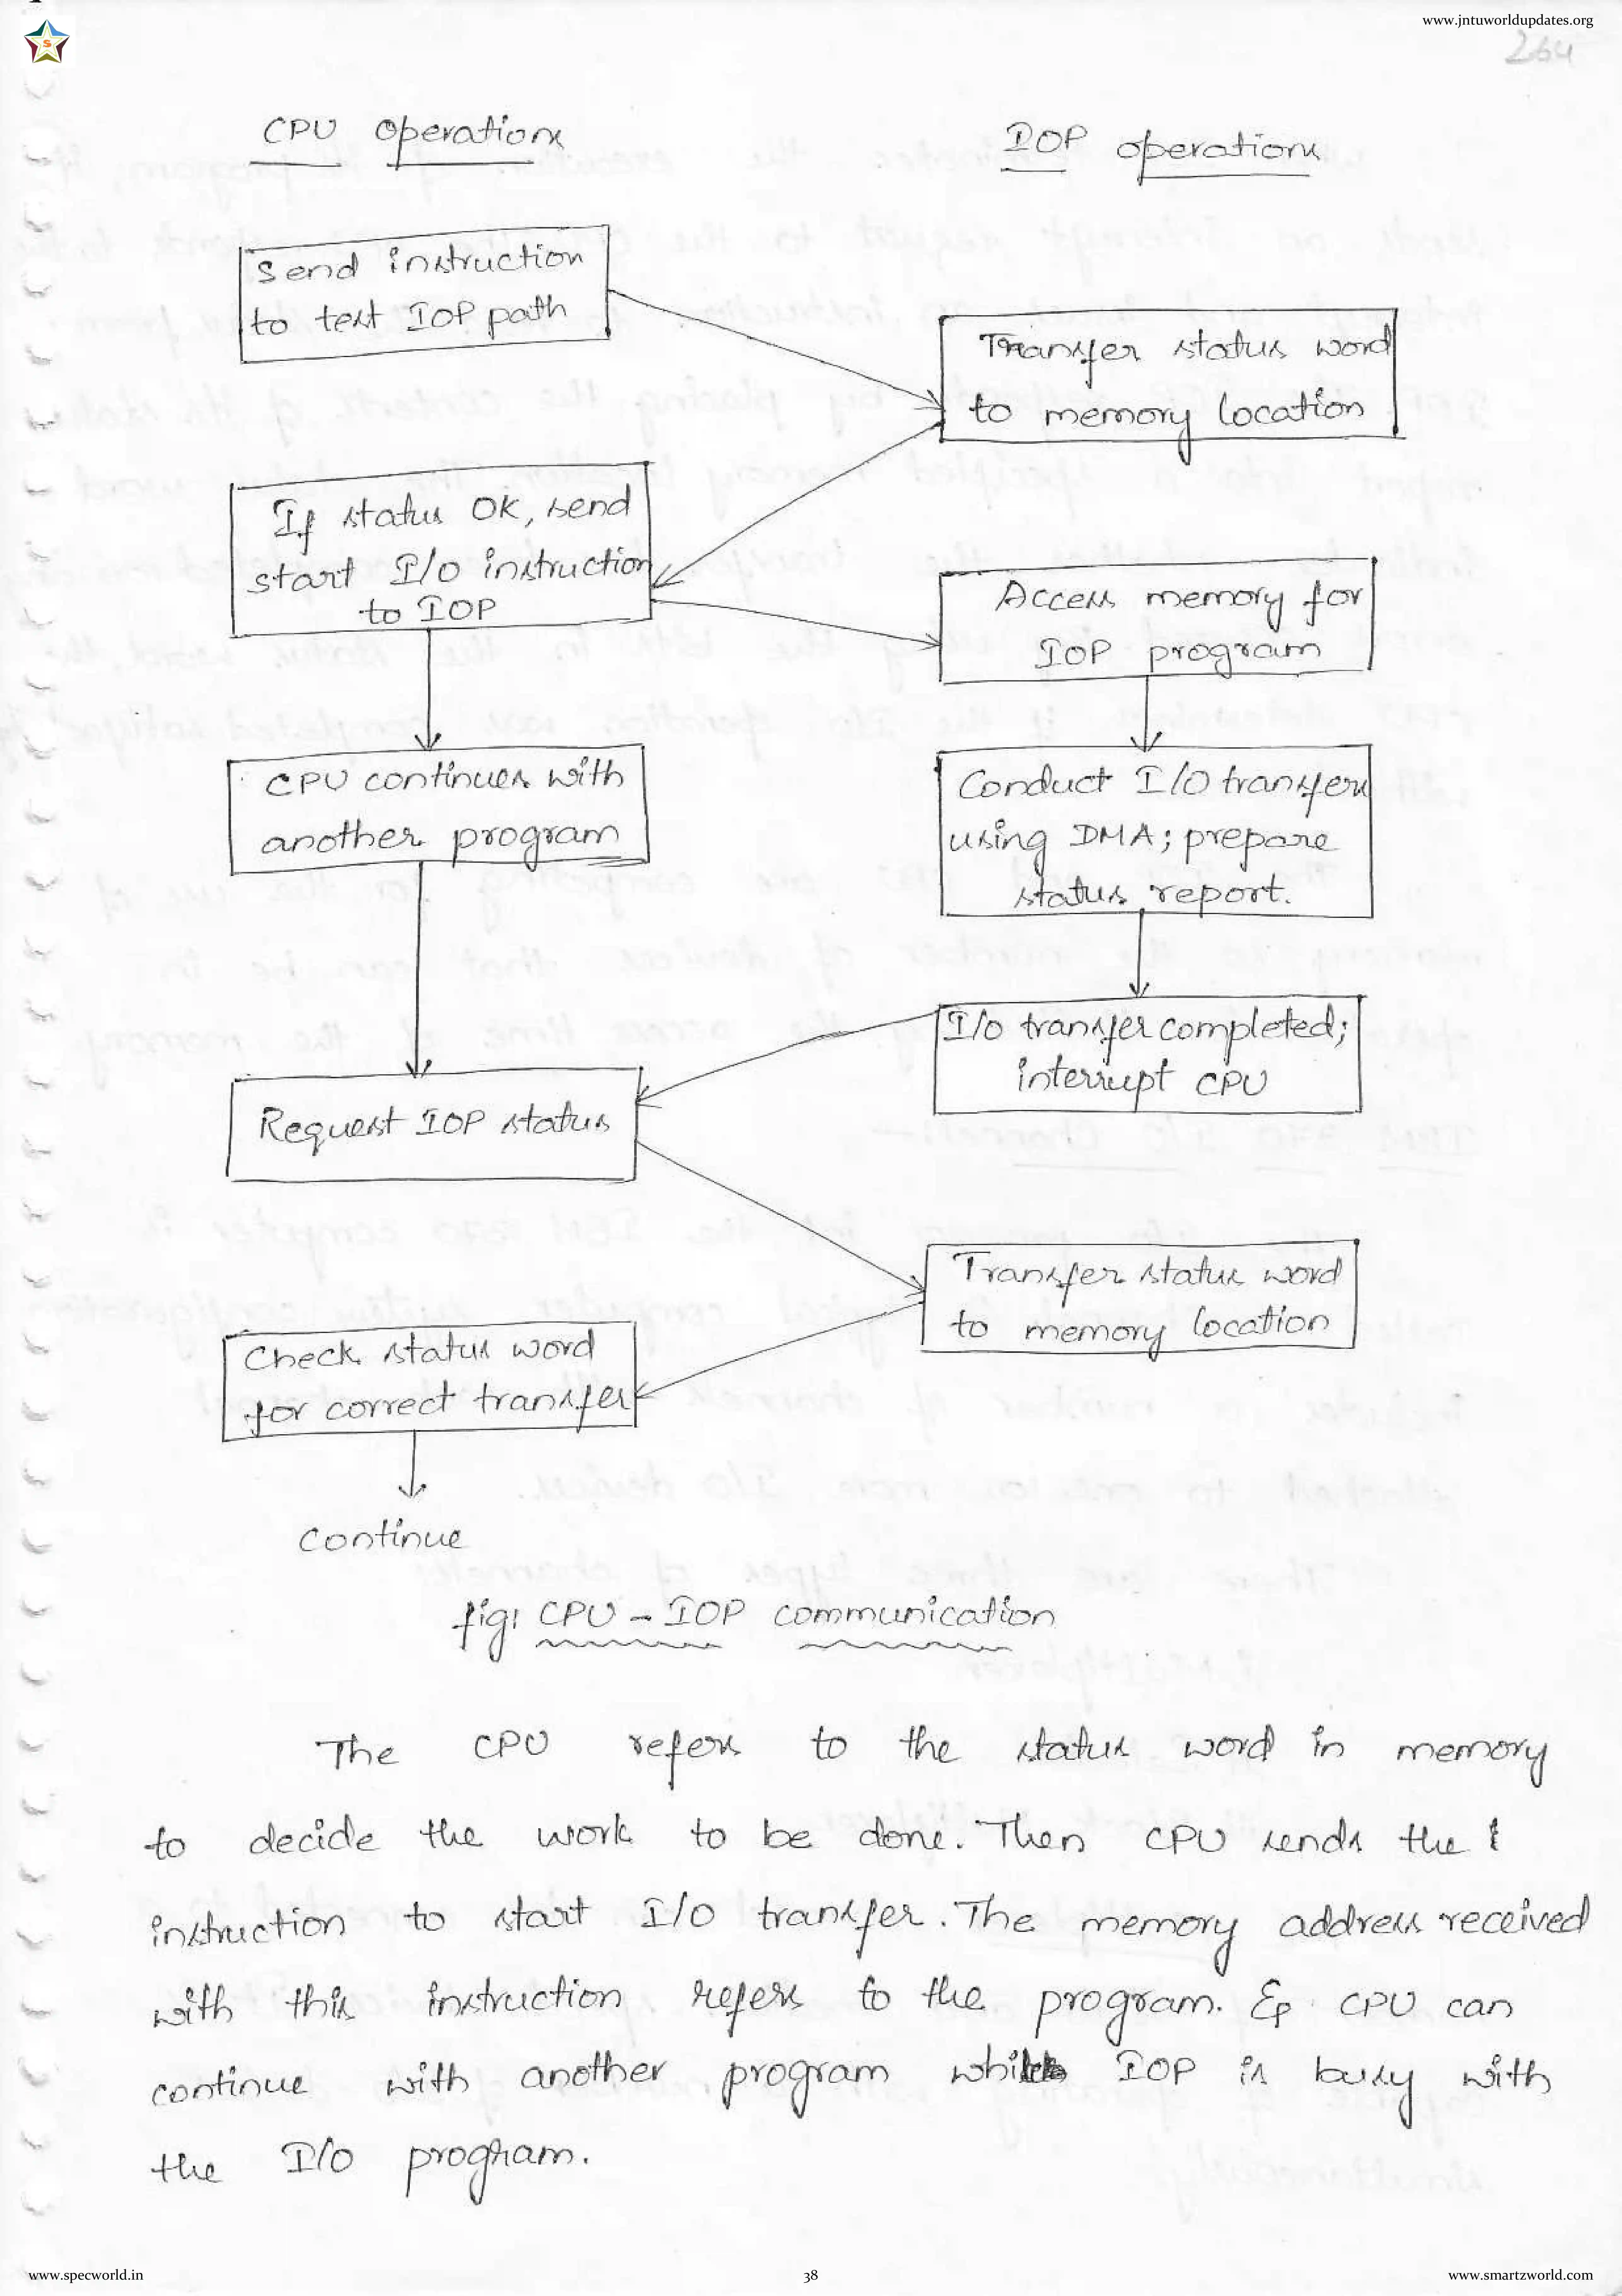 www.jntuworldupdates.org
S
264
CPU operations
IOP operations
Send instruction
to test IOP path
Transfer status word
to memory location
If status OK, send
start I/O instruction
to IOP
Access memory for
IOP program
CPU continues with
another program
Conduct I/O transfers
using DMA; prepare
status report.
I/O transfer completed;
interrupt CPU
Request IOP status
Transfer status word
to memory location
Check status word
for correct transfer
Continue
fig: CPU - IOP communication
The CPU refers to the status word in memory
to decide the work to be done. Then CPU sends the
instruction to start I/O transfer. The memory address received
with this instruction refers to the program. CPU can
continue with another program while IOP is busy with
the I/O program.
www.specworld.in
38
www.smartzworld.com